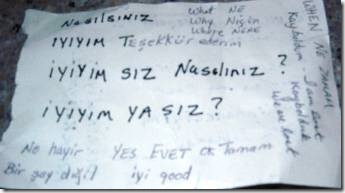 Nasılsınız
What NE
Why Niçin
Where NERE
İYİYİM Teşekkür ederim
İYİYİM SIZ Nasılınız ?
İYİYİM YA SIZ ?
No hayir YES EVET OK Tamam
Bir şey değil iyi good
WHEN NE ZAMAN
Kayboldum I am lost
Kaybolduk
We are lost